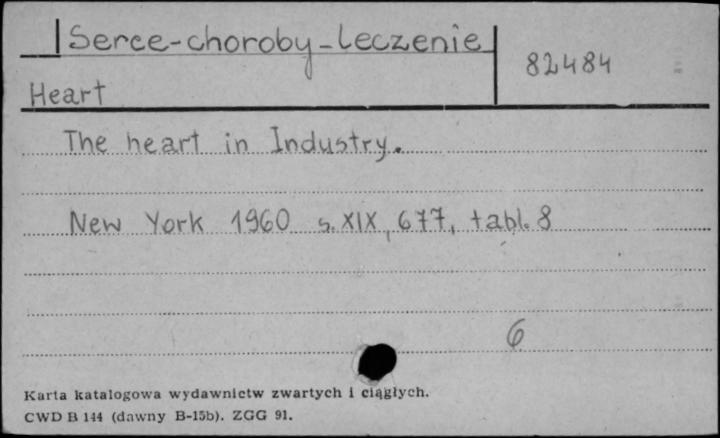 Serce-choroby-leczenie
82484
Heart
The heart in Industry.
New York 1960 s. XIX, 677, tabl. 8
6
Karta katalogowa wydawnictw zwartych i ciągłych.
CWD B 144 (dawny B-15b). ZGG 91.